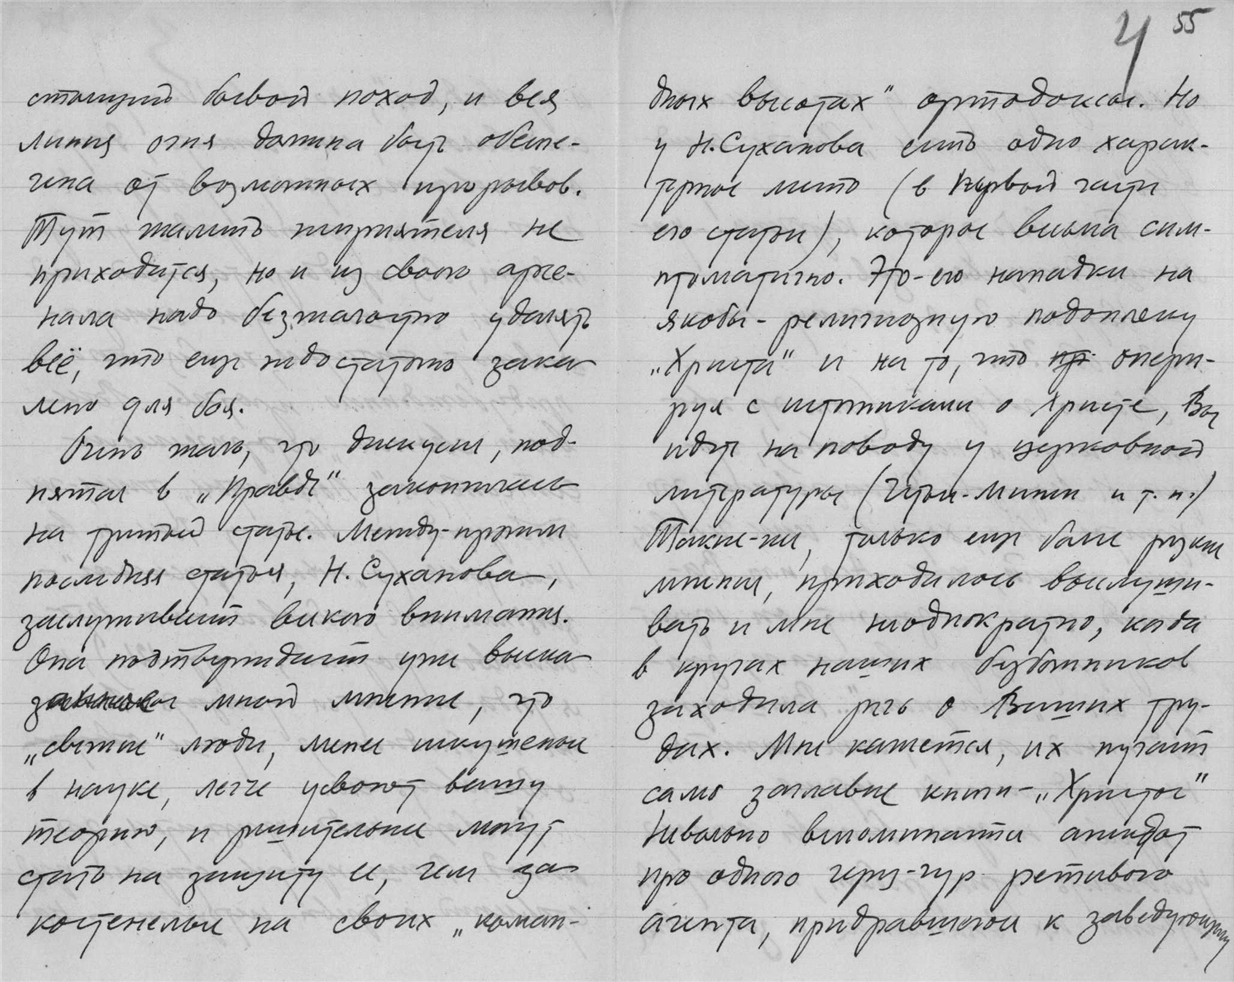 стоящий боевой поход, и вся
линия огня должна быть обеспе-
чена от возможных прорывов.
Тут жалить неприятеля не
приходится, но и из своего арсе-
нала надо безжалостно удалять
всё, что еще недостаточно зака
лено для боя.
Очень жаль, что дискуссия, под-
нятая в „Правде" закончилась
на третьей статье. Между-прочим
последняя статья, Н. Суханова,
заслуживает всякого внимания.
Она подтверждает уже выска
занное мной мнение, что
„светские" люди, менее искушенные
в науке, легче усвоют вашу
теорию, и решительнее могут
стать на защиту ее, чем за-
костенелые на своих „коман-
4 55
дных высотах" ортодоксы. Но
у Н. Суханова есть одно харак-
терное место (в первой части
его статьи), которое весьма сим-
птоматично. Это-его нападки на
якобы-религиозную подоплеку
„Христа" и на то, что опери-
руя с источниками о Христе, Вы
идете на поводу у церковной
литературы (Четьи-Минеи и т. п.)
Такие-же, только еще более резкие
мнения, приходилось выслуши-
вать и мне неоднократно, когда
в кругах наших безбожников
заходила речь о Ваших тру-
дах. Мне кажется, их пугает
само заглавие книги-„Христос"
Невольно вспоминается анекдот
про одного через-чур ретивого
агента, придравшегося к заведующему